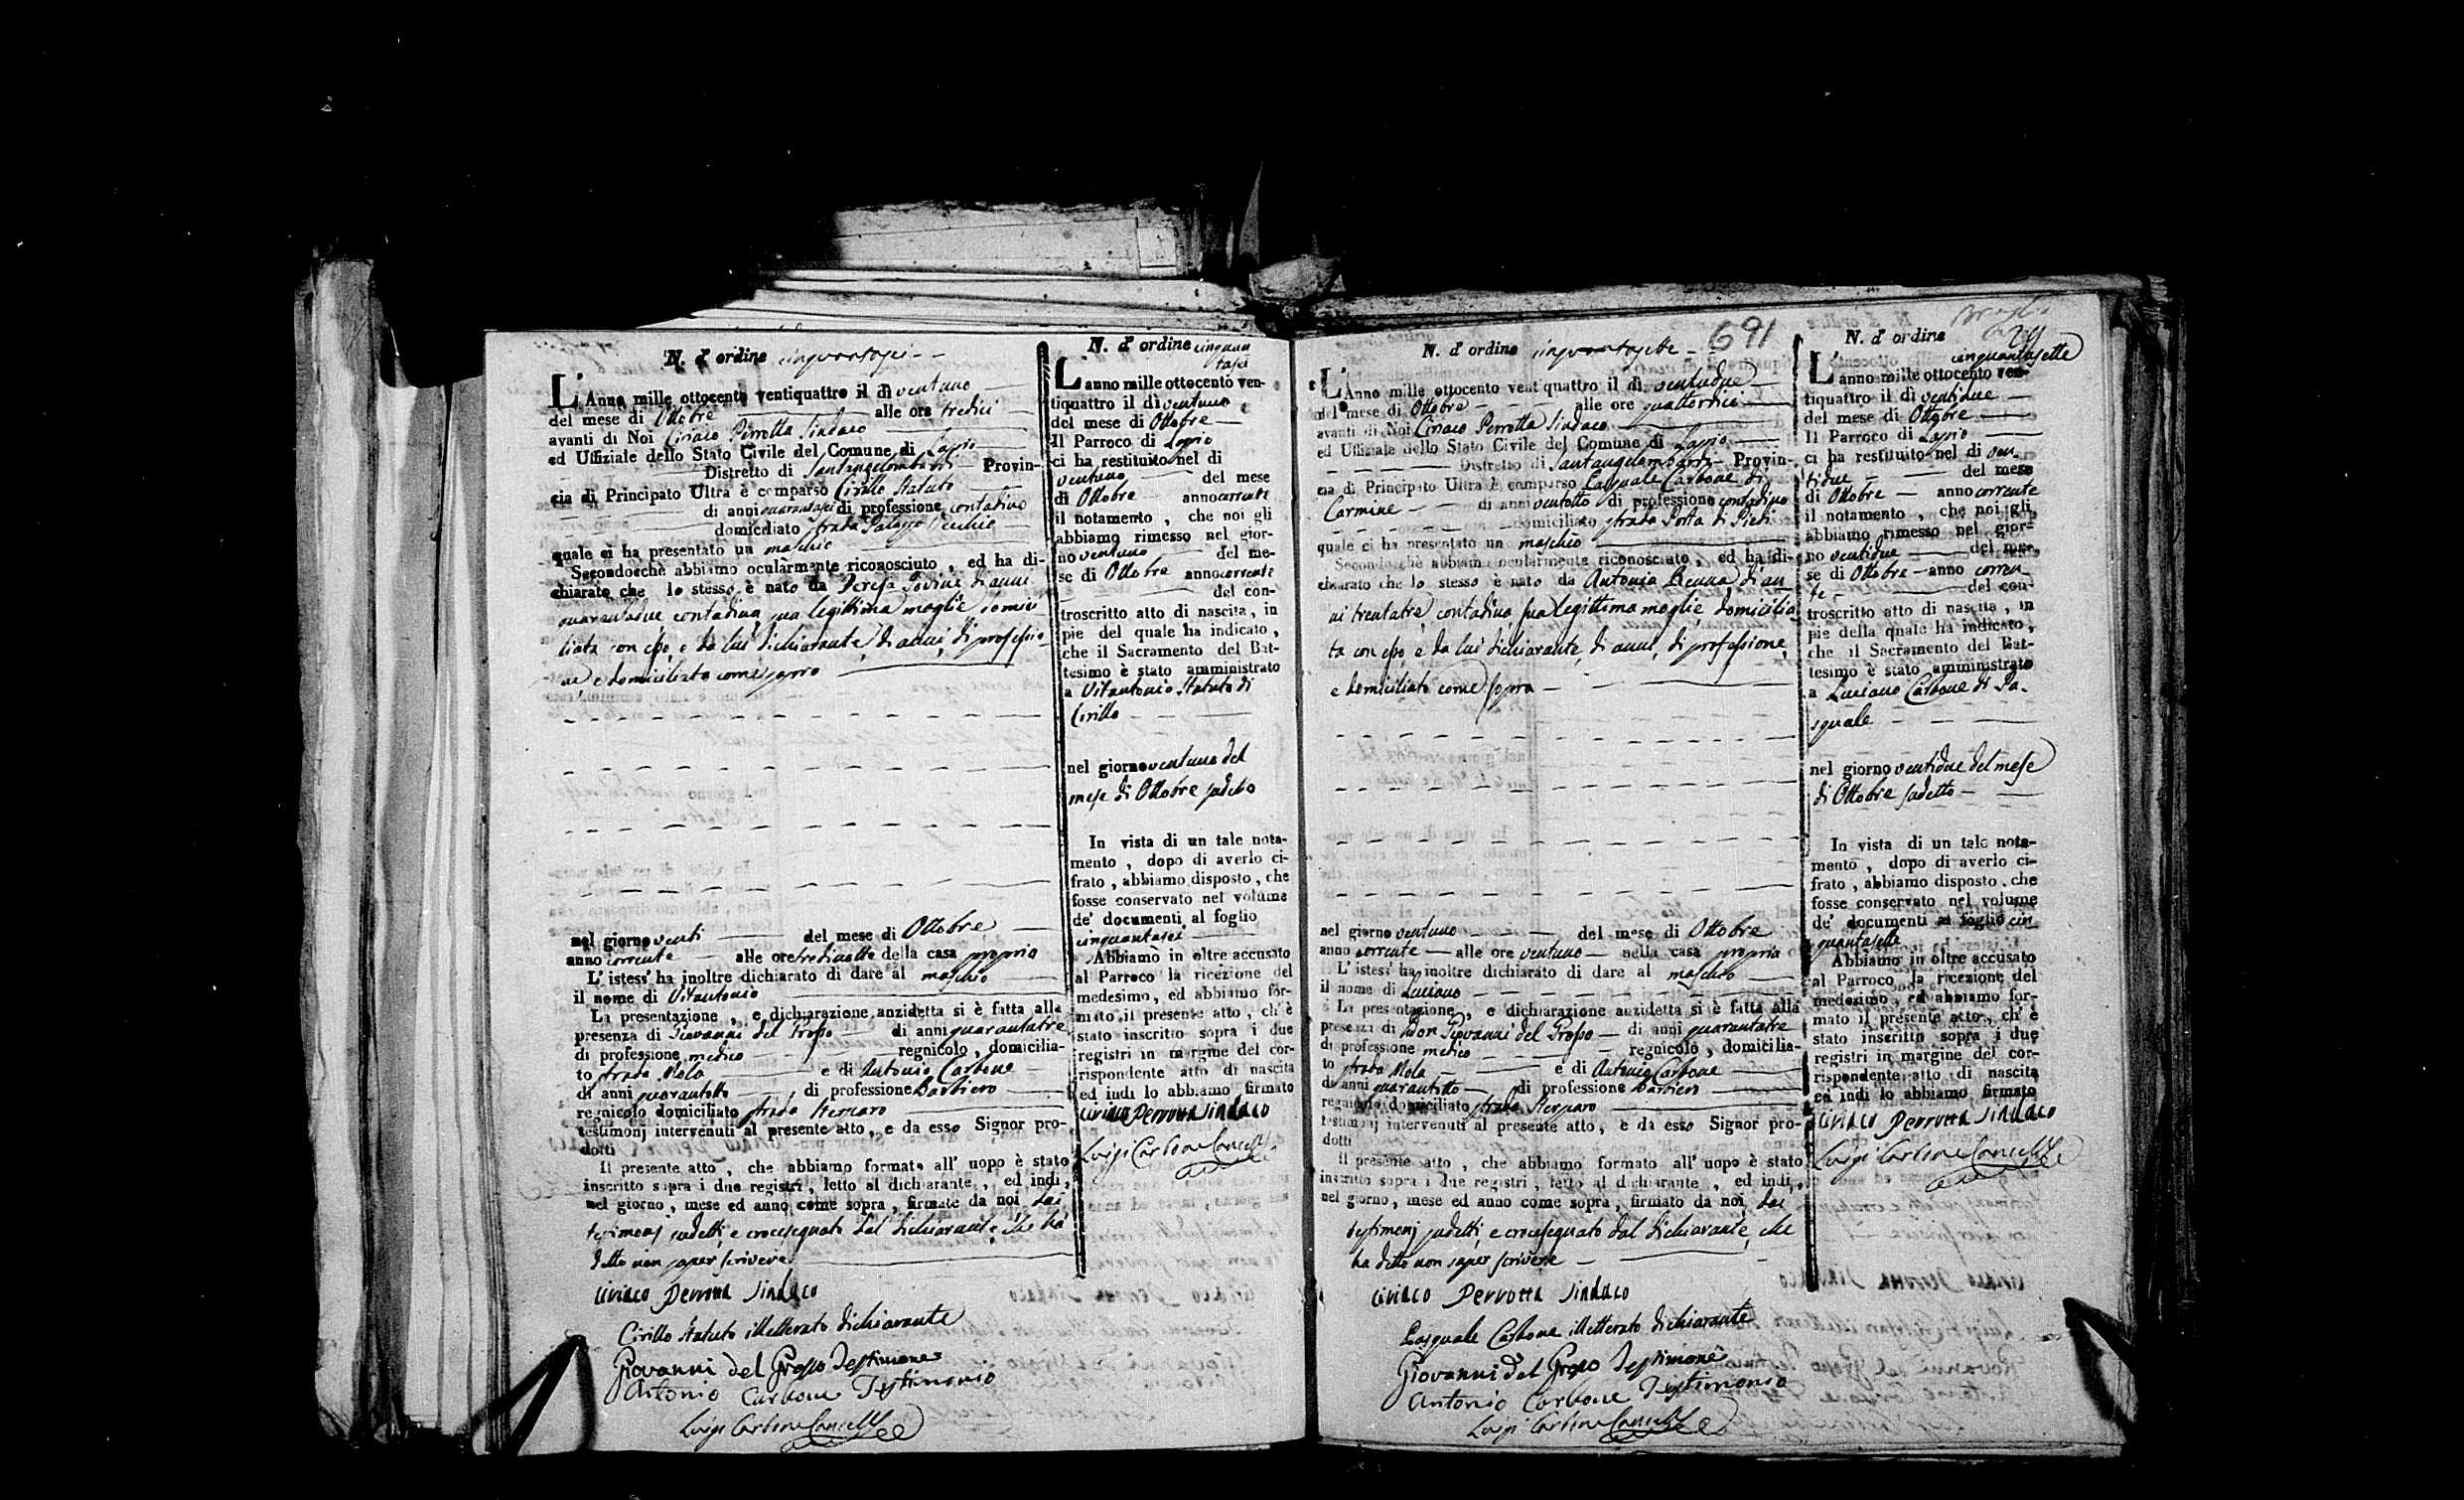 N. d' ordine cinquantasei
L' Anno mille ottocento ventiquattro il dì ventuno
del mese di Ottobre alle ore tredici
avanti di Noi Ciriaco Perrotta Sindaco
ed Uffiziale dello Stato Civile del Comune di Lapio
Distretto di Santangelombardi Provin-
cia di Principato Ultra è comparso Cirillo Statuto
di anni quarantasei di professione contadino
domiciliato strada Palazzo Vecchio
quale ci ha presentato un maschio
Secondocchè abbiamo ocularmente riconosciuto, ed ha di-
chiarato che lo stesso è nato da Teresa Iovine di anni
quarantadue contadina sua legittima moglie domici
liata con esso, e da lui dichiarante, di anni, di professio
ne, e domiciliato come sopra
nel giorno venti del mese di Ottobre
anno corrente alle ore della casa propria
L' istess' ha inoltre dichiarato di dare al maschio
il nome di Vitantonio
La presentazione, e dichiarazione anzidetta si è fatta alla
presenza di Giovanni del Grosso di anni quarantatre
di professione medico regnicolo, domicilia-
to strada Mola e di Antonio Carbone
di anni quarantotto, di professione Barbiero
regnicolo domiciliato strada
testimonj intervenuti al presente atto, e da esso Signor pro-
dotti
Il presente atto, che abbiamo formato all' uopo è stato
inscritto sopra i due registri, letto al dichiarante, ed indi,
nel giorno, mese ed anno come sopra, firmato da noi dai
testimonj sudetti, e crocesegnato dal dichiarante, che ha
detto non saper scrivere
Ciriaco Perrotta Sindaco
Cirillo Statuto illetterato dichiarante
Giovanni del Grosso Testimone
Antonio Carbone Testimonio
Luigi Carbone Cancell
N. d' ordine cinquan
tasei
L' anno mille ottocento ven-
tiquattro il dì ventuno
del mese di Ottobre
Il Parroco di Lapio
ci ha restituito nel di
ventuno del mese
di Ottobre anno corrente
il notamento, che noi gli
abbiamo rimesso nel gior-
no ventuno del me-
se di Ottobre anno corrente
del con-
troscritto atto di nascita, in
pie del quale ha indicato,
che il Sacramento del Bat-
tesimo è stato amministrato
a Vitantonio Statuto di
Cirillo
nel giorno ventuno del
mese di Ottobre sudetto
In vista di un tale nota-
mento, dopo di averlo ci-
frato, abbiamo disposto, che
fosse conservato nel volume
de' documenti al foglio
cinquantasei
Abbiamo in oltre accusato
al Parroco la ricezione del
medesimo, ed abbiamo for-
mato il presente atto, ch' è
stato inscritto sopra i due
registri in margine del cor-
rispondente atto di nascita
ed indi lo abbiamo firmato
Ciriaco Perrotta Sindaco
Luigi Carbone Cancell
691
N. d' ordine cinquantasette
L' Anno mille ottocento ventiquattro il dì ventidue
del mese di Ottobre alle ore quattordici
avanti di Noi Ciriaco Perrotta Sindaco
ed Uffiziale dello Stato Civile del Comune di Lapio
Distretto di Santangelombardi Provin-
cia di Principato Ultra è comparso Pasquale Carbone di
Carmine di anni ventotto di professione contadino
domiciliato strada Porta di Piedi
quale ci ha presentato un maschio
Secondocchè abbiamo ocularmente riconosciuto, ed ha di-
chiarato che lo stesso è nato da Antonia di an
ni trentatre contadina sua legittima moglie, domicilia
ta con esso, e da lui dichiarante, di anni, di professione,
e domiciliato come sopra
nel giorno ventuno del mese di Ottobre
anno corrente alle ore ventuno nella casa propria
L' istess' ha inoltre dichiarato di dare al maschio
il nome di Luciano
La presentazione, e dichiarazione anzidetta si è fatta alla
presenza di Don Giovanni del Grosso di anni quarantatre
di professione medico regnicolo, domicilia-
to strada Mola e di Antonio Carbone
di anni quarantotto di professione Barbiero
regnicolo domiciliato strada
testimonj intervenuti al presente atto, e da esso Signor pro-
dotti
Il presente atto, che abbiamo formato all' uopo è stato
inscritto sopra i due registri, letto al dichiarante, ed indi,
nel giorno, mese ed anno come sopra, firmato da noi dai
testimonj sudetti, e crocesegnato dal dichiarante, che
ha detto non saper scrivere
Ciriaco Perrotta Sindaco
Pasquale Carbone illetterato dichiarante
Giovanni del Grosso Testimone
Antonio Carbone Testimonio
Luigi Carbone Cancell
N. d' ordine
cinquantasette
L' anno mille ottocento ven-
tiquattro il dì ventidue
del mese di Ottobre
Il Parroco di Lapio
ci ha restituito nel di ven
tidue del mese
di Ottobre anno corrente
il notamento, che noi gli
abbiamo rimesso nel gior-
no ventidue del me-
se di Ottobre anno corren
te del con-
troscritto atto di nascita, in
pie della quale ha indicato,
che il Sacramento del Bat-
tesimo è stato amministrato
a Luciano Carbone di Pa-
squale
nel giorno ventidue del mese
di Ottobre sudetto
In vista di un tale nota-
mento, dopo di averlo ci-
frato, abbiamo disposto, che
fosse conservato nel volume
de' documenti al foglio cin
quantasette
Abbiamo in oltre accusato
al Parroco la ricezione del
medesimo, ed abbiamo for-
mato il presente atto, ch' è
stato inscritto sopra i due
registri in margine del cor-
rispondente atto di nascita
ed indi lo abbiamo firmato
Ciriaco Perrotta Sindaco
Luigi Carbone Cancell